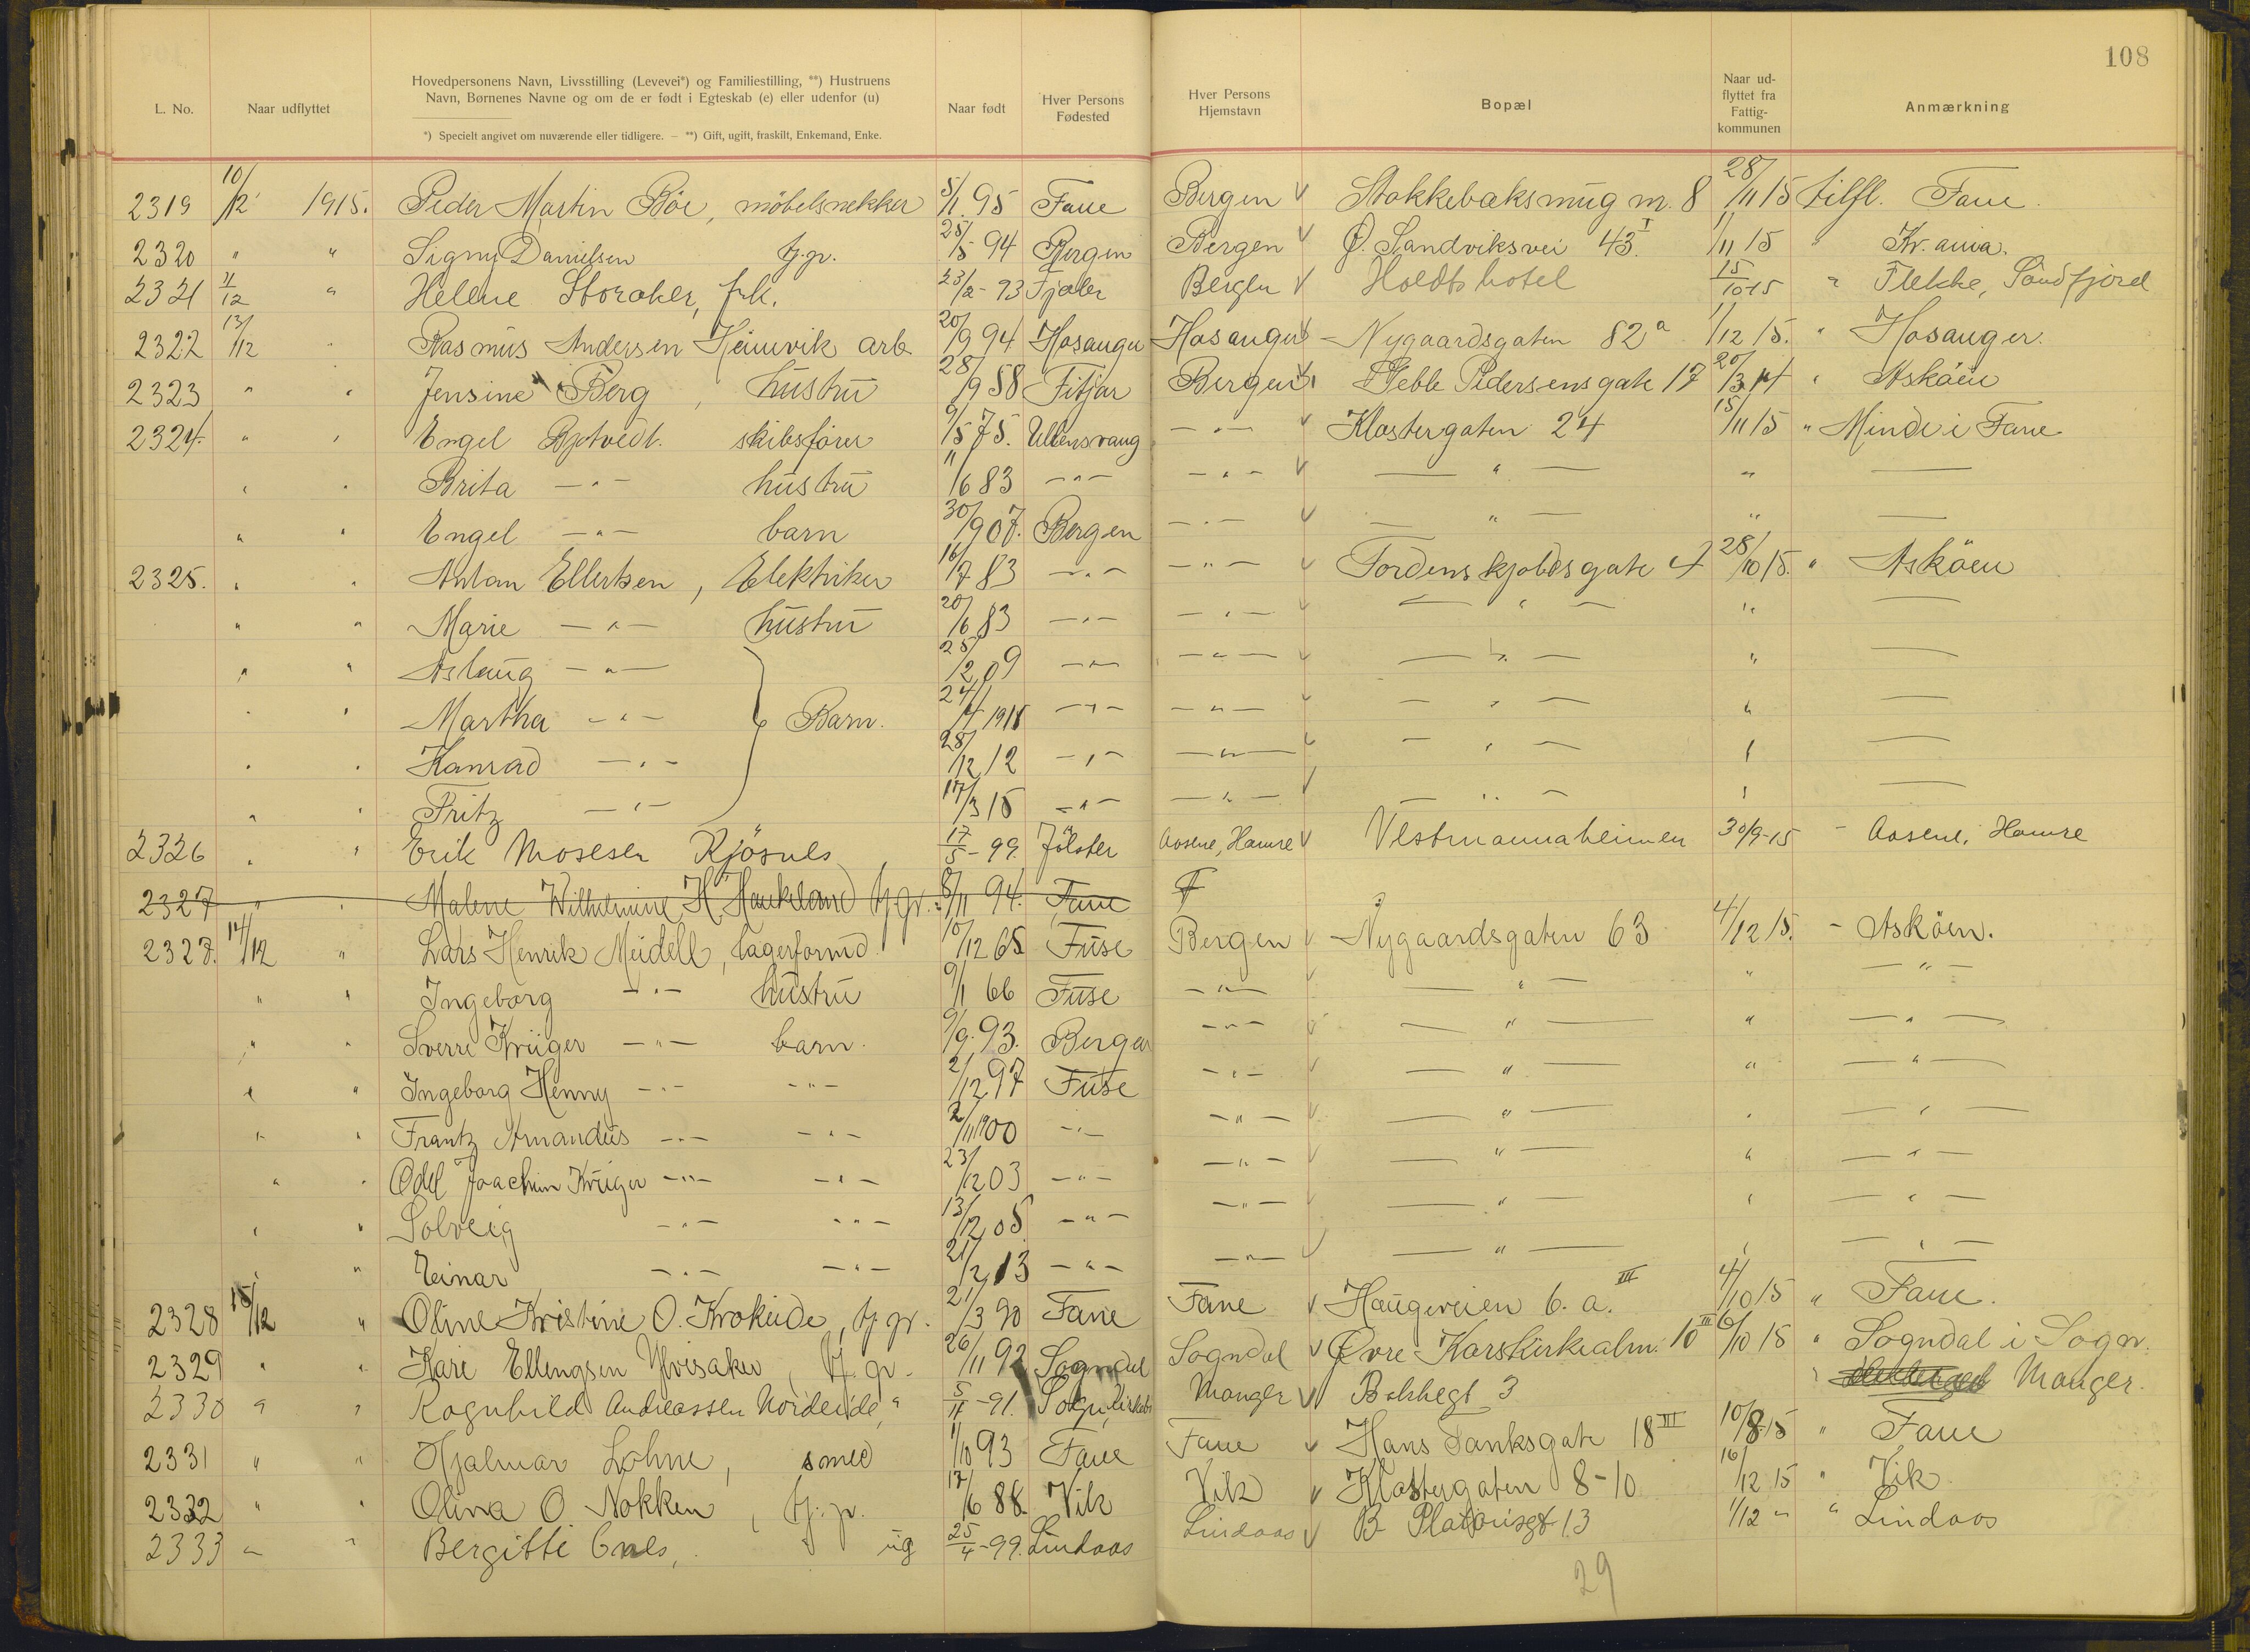 108
L. No.
Naar udflyttet
Hovedpersonens Navn, Livsstilling (Levevei*) og Familiestilling, **) Hustruens
Navn, Børnenes Navne og om de er født i Egteskab (e) eller udenfor (u)
*) Specielt angivet om nuværende eller tidligere. — **) Gift, ugift, fraskilt, Enkemand, Enke.
Naar født
Hver Persons
Fødested
Hver Persons
Hjemstavn
Bopæl
Naar ud-
flyttet fra
Fattig-
kommunen
Anmærkning
2319 10/12 1915. Peder Martin Böe, möbelsnekker 5/1 95 Fane Bergen Stokkebaksmug m. 8 28/11 15 tilfl. Fane.
2320 " " Signy Danielsen tj.gr. 25/5 94 Bergen Bergen Ö. Sandviksvei 43 I 1/11 15 " Kr.ania.
2321 11/12 " Helene Storaker, frk. 23/2-93 Fjaler Bergen Holdts hotel 15/10-15 " Flekke, Söndfjord
2322 13/12 " Rasmus Andersen Heimvik arb 20/9 94 Hosanger Hosanger Nygaardsgaten 82a 1/12 15. " Hosanger.
2323 " " Jensine Berg, hustru 28/9 58 Fitjar Bergen Geble Pedersens gate 17 20/3 14 " Asköen
2324. " " Engel skibsförer 9/5 75. Ullensvang -"- Klostergaten 24 15/11 15 " Minde i Fane
" " Brita -"- hustru 11/6 83 -"- -"- -"- " —
" " Engel -"- barn 30/9 07. Bergen -"- -"- " —
2325. " " Anton Ellertsen, Elektriker 16/7 83 -"- -"- Tordenskjoldsgate 28/10 15. " Asköen
" " Marie -"- hustru 20/6 83 -"- -"- -"- " —
" " Aslaug -"- 25/12 09 -"- -"- -"- " —
" " Martha -"- Barn. 24/4 1911 -"- -"- -"- " —
" " Konrad -"- 28/12 12 -"- -"- -"- " —
" " Fritz -"- 17/3 15 -"- -"- -"- " —
2326 " " Erik Mosesen Kjösnes 17/5-99. Jölster Aasene, Hamre Vestmannaheimen 30/9-15 - Aasene, Hamre
2327 " " Malene Wilhelmine H. Haukeland tj.gr. 8/11 94. Fane F
2327. 14/12 " Lars Henrik Meidell, lagerformd. 10/12 65 Fuse Bergen Nygaardsgaten 63 4/12 15. - Asköen.
" " Ingeborg -"- hustru 9/1 66 Fuse -"- -"- " -"-
" " Sverre Krüger -"- barn. 9/9. 93. Bergen -"- -"- " -"-
" " Ingeborg Henny -"- -"- 2/12 97 Fuse -"- -"- " -"-
" " Frantz Amandus -"- -"- 2/11 1900 -"- -"- -"- " -"-
" " Odd Joachim Krüger -"- -"- 23/12 03 -"- -"- -"- " -"-
" " Solveig -"- -"- 13/12 05 -"- -"- -"- " -"-
" " Einar -"- -"- 21/2 13 -"- -"- -"- " -"-
2328 15/12 " Oline Kristine O. Krokeide, tj.gr. 21/3 90 Fane Fane Haugeveien 6. a. III 4/10 15 " Fane.
2329 " " Kari Ellingsen Ylvisaker, tj.gr. 26/11 92 Sogndal Sogndal Övre Korskirkealm. 10 III 6/10 15 " Sogndal i Sogn.
2330 " " Ragnhild Andreassen Nordeide, " 5/11-91. Manger Bolshegt 3 " Manger.
2331 " " Hjalmar Lohne, smed 1/10 93 Fane Fane Hans Tanksgate 18 III 10/8 15 " Fane
2332 " " Olina O. Nokken, tj.gr. 17/6 88. Vik Vik Klostergaten 8-10 16/12 15 " Vik
2333 " " Bergitte Enes, ug 25/4-99. Lindaas Lindaas B Platousgt 13 1/12 " " Lindaas
29